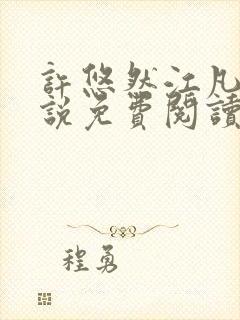 許悠然江凡
說免費閱讀
程勇